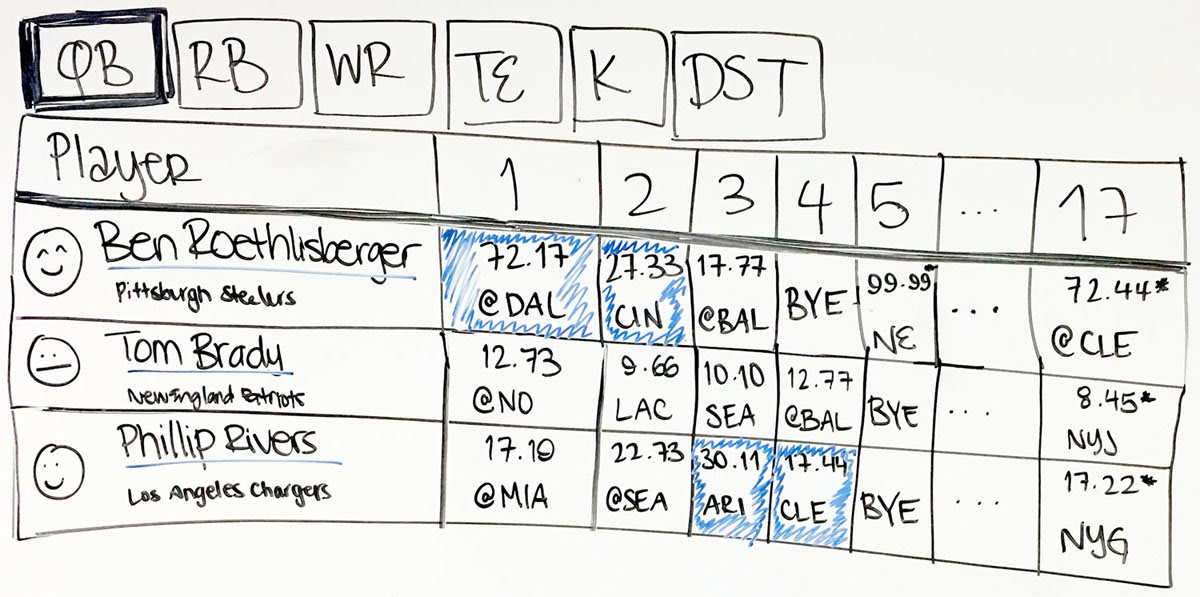 QB RB WR TE K DST
Player 1 2 3 4 5 ... 17
Ben Roethlisberger 72.17 27.33 17.77 BYE 99.99* ... 72.44*
Pittsburgh Steelers @DAL CIN @BAL NE @CLE
Tom Brady 12.73 9.66 10.10 12.77 BYE ... 8.45*
New England Patriots @NO LAC SEA @BAL NYJ
Phillip Rivers 17.10 22.73 30.11 17.44 BYE ... 17.22*
Los Angeles Chargers @MIA @SEA ARI CLE NYG